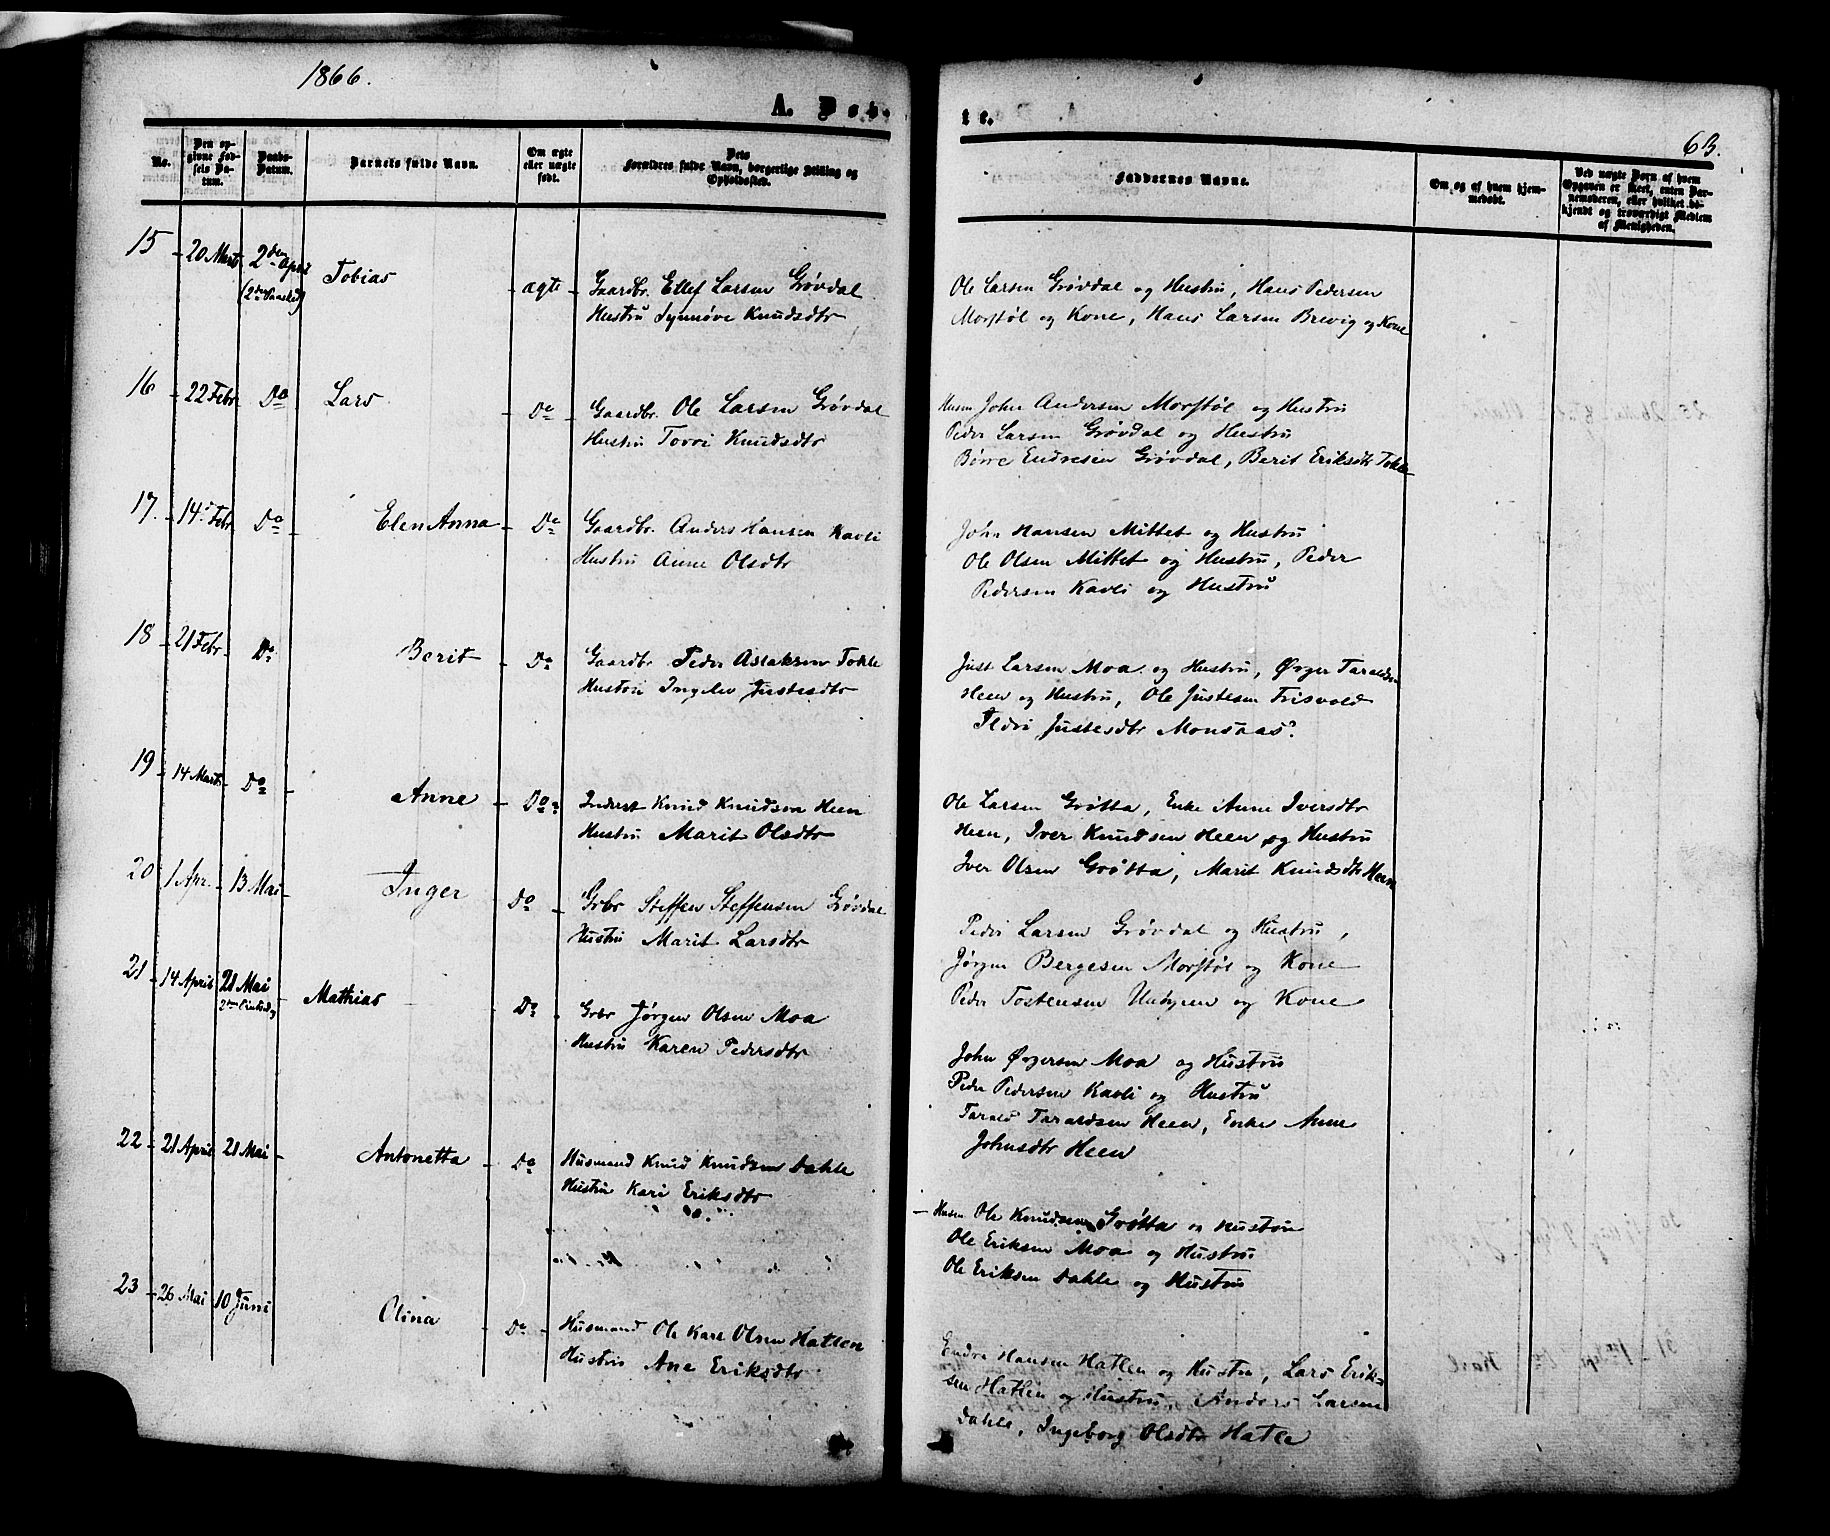 1866.
A. Døb-
te.
63.
No.
Den op-
givne Fød-
sels Da-
tum.
Daabs-
Datum.
Barnets fulde Navn.
Om ægte
eller uægte
født.
Dets
Forældres fulde Navn, borgerlige Stilling og
Opholdssted.
Faddernes Navne.
Om og af hvem hjem-
medøbt.
Ved uægte Barn af hvem
Opgaven er skeet, enten Bar-
nemoderen, eller hvilket be-
kjendt og troværdigt Medlem
af Menigheden.
15 20 Marts 2den April (2den Paasked) Tobias ægte
Gaardbr. Ellef Larsen Grøvdal
Hustru Synnøve Knudsdtr
Ole Larsen Grøvdal og Hustru, Hans Pedersen
Morstøl og Kone, Hans Larsen Brevig og Kone
16 22 Febr Do Lars Do
Gaardbr. Ole Larsen Grøvdal
Hustru Torri Knudsdtr
Husm John Andersen Morstøl og Hustru
Peder Larsen Grøvdal og Hustru
Børre Endresen Grøvdal, Berit Eriksdtr Tokle
17. 14. Febr Do Elen Anna Do
Gaardbr. Anders Hansen Kavli
Hustru Anne Olsdtr
John Hansen Mittet og Hustru
Ole Olsen Mittet og Hustru, Peder
Pedersen Kavli og Hustru
18 21 Febr Do Berit Do
Gaardbr Peder Aslaksen Tokle
Hustru Ingelev Justesdtr
Just Larsen Moa og Hustru, Ørger Taraldsen
Heen og Hustru, Ole Justesen Frisvold
Ildri Justesdtr Monsaas?
19 14 Marts Do Anne Do
Inderst Knud Knudsen Heen
Hustru Marit Olsdtr
Ole Larsen Grøtta, Enke Anne Iversdtr
Heen, Iver Knudsen Heen og Hustru
Iver Olsen Grøtta, Marit Knudsdtr Heen
20 1 Apr. 13 Mai Inger Do
Grbr Steffen Steffensen Grøvdal
Hustru Marit Larsdtr
Peder Larsen Grøvdal og Hustru,
Jørgen Bergesen Morstøl og Kone
Peder Tostensen og Kone
21 14 April 21 Mai Mathias Do
Grbr Jørgen Olsen Moa
Hustru Karen Pedersdtr
John Ørgersen Moa og Hustru
Peder Pedersen Kavli og Hustru
Tarald Taraldsen Heen, Enke Anne
Johnsdtr Heen
22 21 April 21 Mai Antonetta Do
Husmand Knud Knudsen Dahle
Hustru Kari Eriksdtr
Husm Ole Knudsen Grøtta og Hustru
Ole Eriksen Moa og Hustru
Ole Eriksen Dahle og Hustru
23 26 Mai 10 Juni Olina Do
Husmand Ole Karl Olsen Hatlen
Hustru Ane Eriksdtr
Endre Hansen Hatlen og Hustru, Lars Erik-
sen Hatlen og Hustru, Anders Larsen
Dahle, Ingeborg Olsdtr Hatle